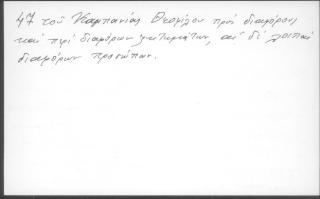 47 τοῦ Καμπανίας Θεοφίλου πρὸς διαφόρους
καὶ περὶ διαφόρων ζητημάτων, αἱ δὲ λοιπαὶ
διαφόρων προσώπων.